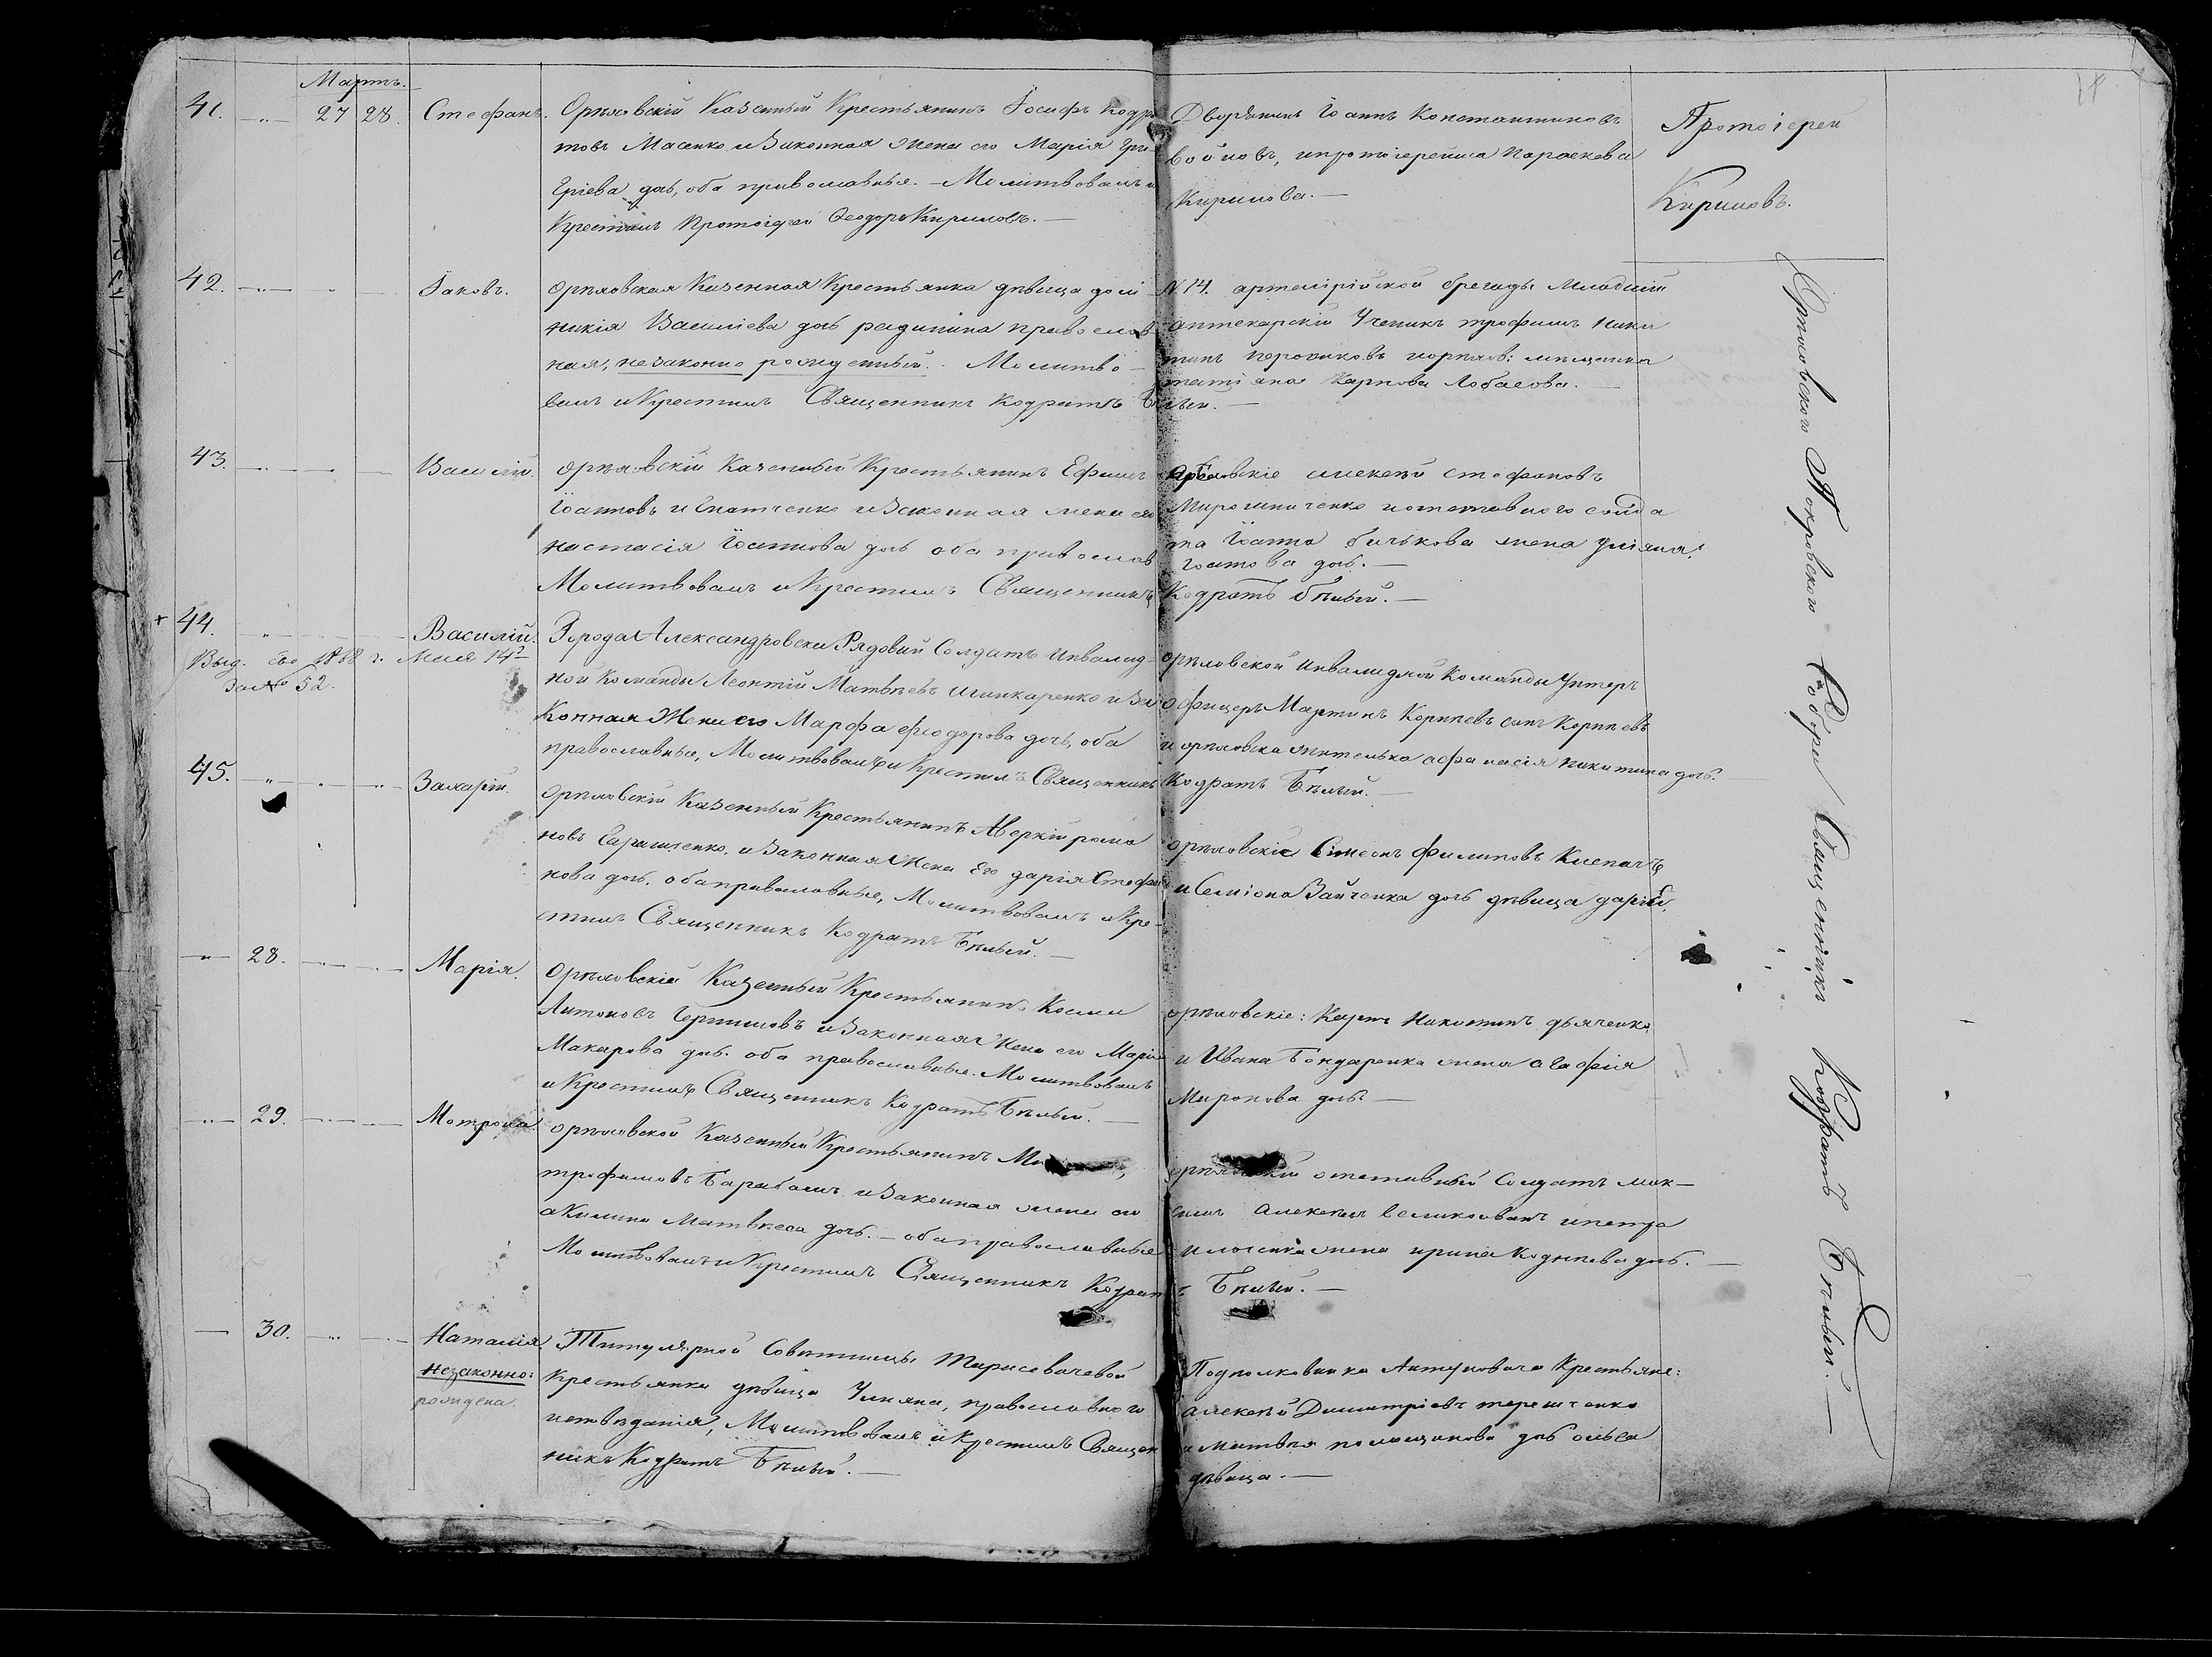 Мартъ.
41. 27 28. Стефанъ. Орѣховскій Казенный Крестьянинъ Іосифъ Кодра
товъ Масенко и Законная Жена его Марія Гри
горіева дчь, оба православные. – Молитвовалъ и
Крестилъ Протоіерей Ѳеодоръ Кириловъ. –
Дворянинъ Іоаннъ Константиновъ
Войновъ, и протоіерейша Параскева
Кирилова. –
Протоіерей
Кириловъ.
42. Іаковъ. Орѣховская Казенная Крестьянка дѣвица доми
никія Василіева дчь православ
ная, незаконно рожденный. Молитво
валъ и Крестилъ Священникъ Кодратъ Бѣлый. –
N 14. артилерійской бригады Младшій
аптекарскій Ученикъ трофимъ Ники
тинъ и орѣхов: мѣщанка
татіана Карпова Лобасова. –
43. Василій. Орѣховскій Казенный Крестьянинъ Ефимъ
Іоанновъ Игнатченко и Законная жена его
настасія Іоаннова дчь оба православ
Молитвовалъ и Крестилъ Священникъ Кодратъ Бѣлый. –
орѣховскіе алексѣй стефановъ
Мирошниченко и отставного солда
та Іоанна бычькова жена уліяна
Іоанова дчь. –
44. Василій. Города Александровска Рядовый Солдатъ Инвалид
ной Команды Леонтій Матвѣевъ Шинкаренко и За
Конная Жена его Марфа феодорова дочь, оба
православные, Молитвовалъ и Крестилъ Священникъ Кодратъ Бѣлый. –
Выд. 1868 г. Мая 14
За № 52.
орѣховской Инвалидной Команды Унтеръ
офицеръ Мартинъ Корнѣевъ сынъ Корнѣевъ
и орѣховска жителька афанасія никитина дчь.
45. Захарій. Орѣховскій Казенный Крестьянинъ Аверкій рома
новъ и Законная Жена Его дарія Стефа
нова дчь, оба православные, Молитвовалъ и Кре
стилъ Священникъ Кодратъ Бѣлый. –
орѣховскіе Симеонъ филиповъ Клепачъ
и Семіона Зайченка дчь дѣвица дарія.
28. Марія. Орѣховскій Казенный Крестьянинъ Косма
Антоновъ и Законная Жена его Марія
Макарова дчь. оба православные. Молитвовалъ
и Крестилъ Священникъ Кодратъ Бѣлый. –
орѣховскіе: Карпъ Никитинъ дяченко
и Ивана Бондаренка жена агафія
Миронова дчь –
29. Мотрона. орѣховской Казенный Крестьянинъ
трофимовъ Барабашъ и Законная жена его
акилина Матвѣева дчь. – оба православные
Молитвовалъ и Крестилъ Священникъ Кодратъ Бѣлый. –
орѣховскій отставный Солдатъ мак–
симъ алексѣевъ и петра
жена ирина дчь. –
30. Наталія Титулярной Совѣтницы Тарасевичевой
незаконно: Крестьянка дѣвица Уліяна, православного
рождена. исповѣданія, Молитвовалъ и Крестилъ Священ
никъ Кодратъ Бѣлый. –
Подполковника Антоновича Крестьяне:
алексѣй Димитріевъ терещенко
и Матвѣя дчь ольга
дѣвица. –
Орѣховского Покровского Собора Священникъ Кодратъ Бѣлый. –